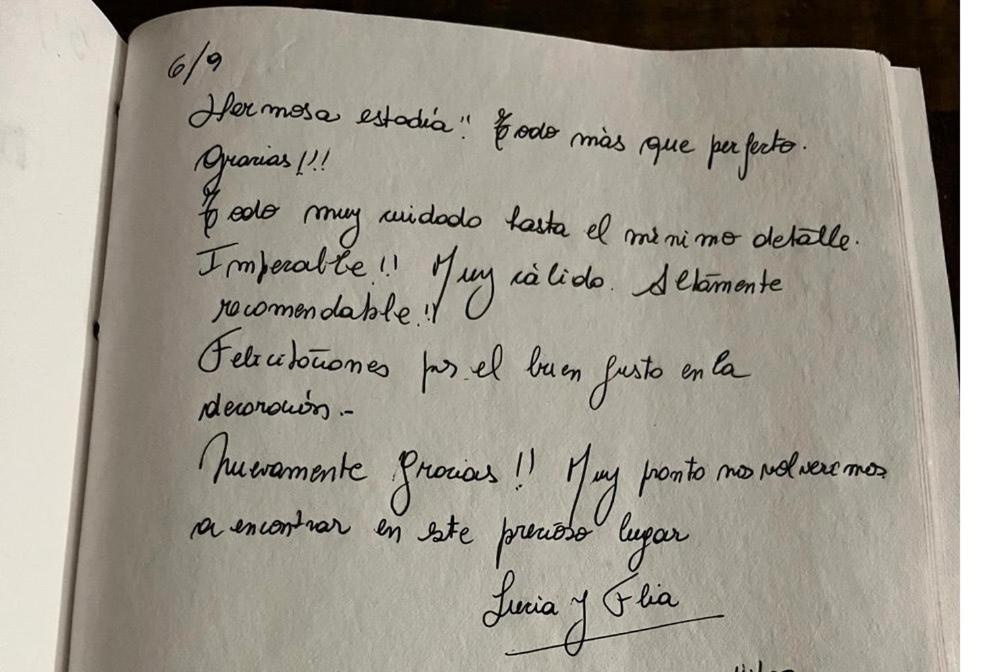 6/9
Hermosa estadía!! Todo màs que perfecto.
Gracias!!!
Todo muy cuidado hasta el mìnimo detalle.
Impecable!! Muy càlido. Altamente
recomendable!!
Felicitaciones por el buen gusto en la
decoración.-
Nuevamente gracias!! Muy pronto nos volveremos
a encontrar en este precioso lugar
Lucia y Flia